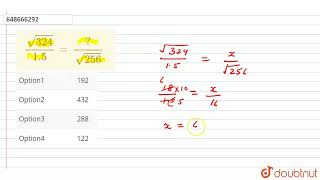 648666292
√324 / 1.5 = ? / √256
Option1 192
Option2 432
Option3 288
Option4 122
√324 / 1.5 = x / √256
6
18×10 / 15 5 = x / 16
x = 6
doubtnut